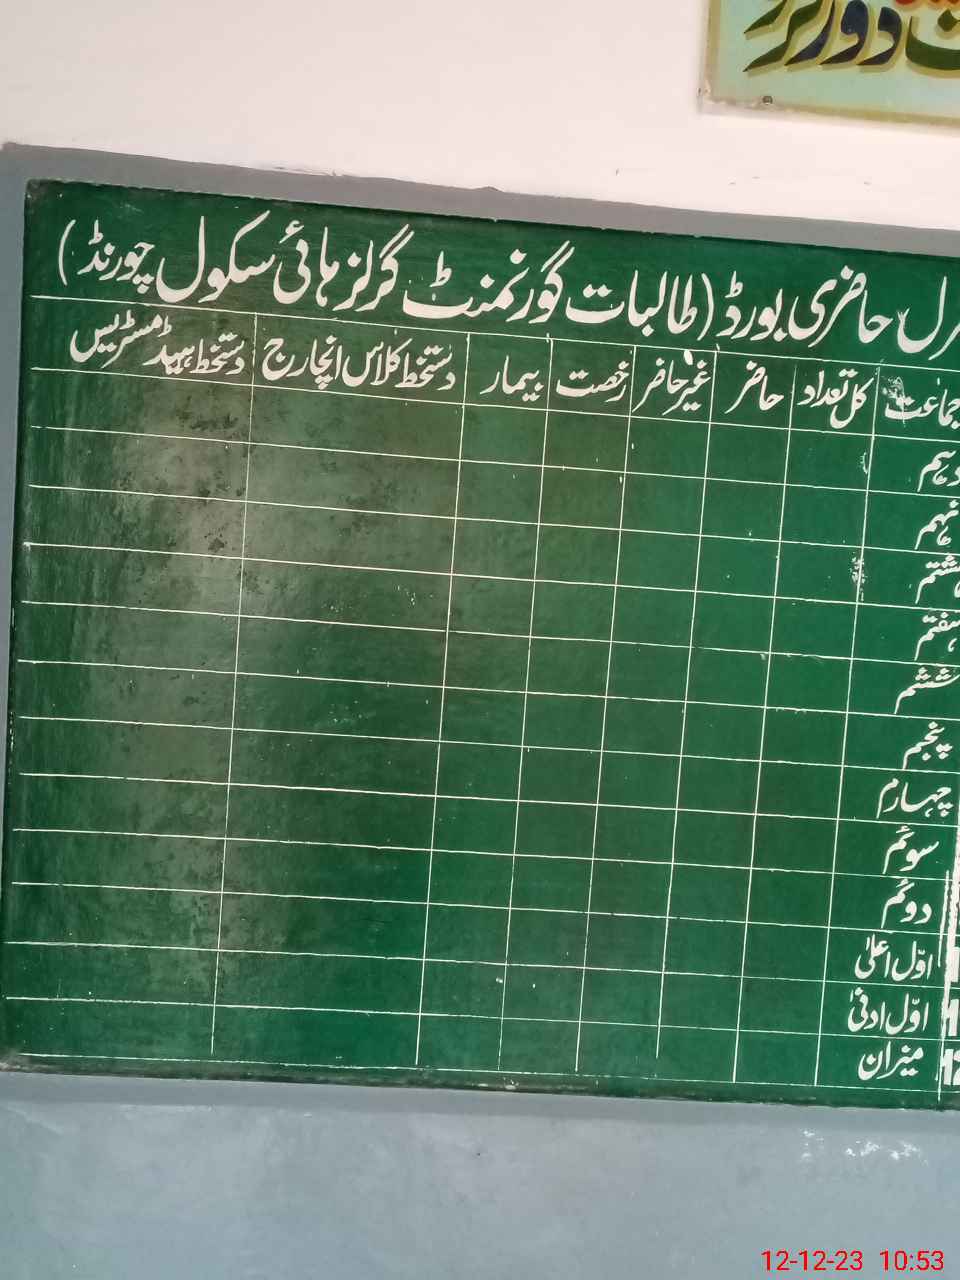 دورنر
جنرل حاضری بورڈ (طالبات گورنمنٹ گرلز ہائی سکول چورنڈ)
جماعت کل تعداد حاضر غیر حاضر رخصت بیمار دستخط کلاس انچارج دستخط ہیڈمسٹریس
دہم
نہم
ہشتم
ہفتم
ششم
پنجم
چہارم
سوئم
دوئم
اوّل اعلیٰ
اوّل ادنیٰ
میزان
12-12-23 10:53